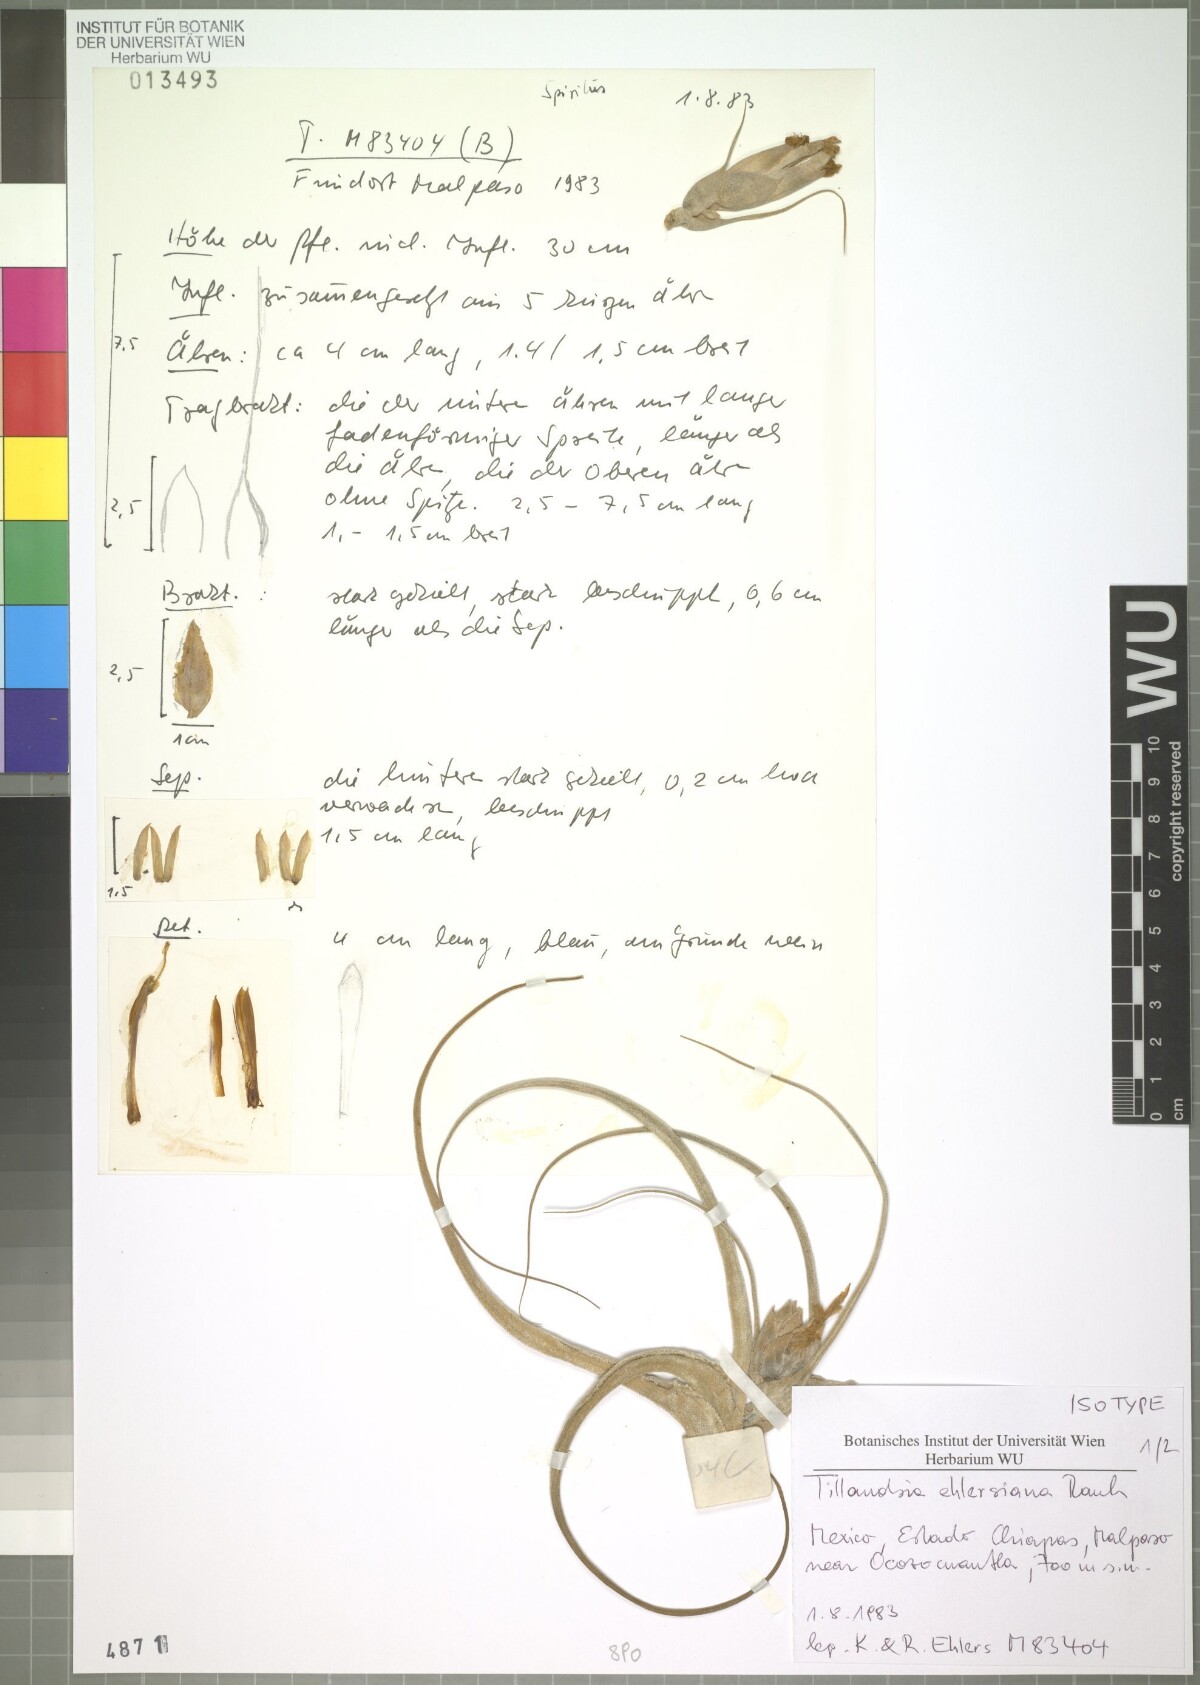 INSTITUT FÜR BOTANIK
DER UNIVERSITÄT WIEN
Herbarium WU
013493
Spiritus 1.8.83
T. M83404 (B)
Fundort Malpaso 1983
Höhe der Pfl. incl. Infl. 30 cm
Infl. zusammengesetzt aus 5 Ähr
7,5
Ähren: ca 4 cm lang, 1.4/ 1,5 cm breit
Tragbrakt: die der unteren Ähren mit langer
fadenförmiger Spreite, länger als
die Ähre, die der oberen Ähr
ohne Spitze. 2,5 – 7,5 cm lang
2,5
1,– 1,5 cm breit
Brakt. : stark gekielt, stark beschuppt, 0,6 cm
länger als die Sep.
2,5
1cm
Sep. die hinteren stark gekielt, 0,2 cm hoch
verwachsen, beschuppt
1,5 cm lang
1,5
Pet. 4 cm lang, blau, am Grunde weiss
WU
copyright reserved
0 1 2 3 4 5 6 7 8 9 10
cm
ISOTYPE
1/2
Botanisches Institut der Universität Wien
Herbarium WU
Tillandsia ehlersiana Rauh
Mexico, Estado Chiapas, Malpaso
near Ocozocuautla, 700 m s.m.
1.8.1983
leg. K. & R. Ehlers M83404
4871